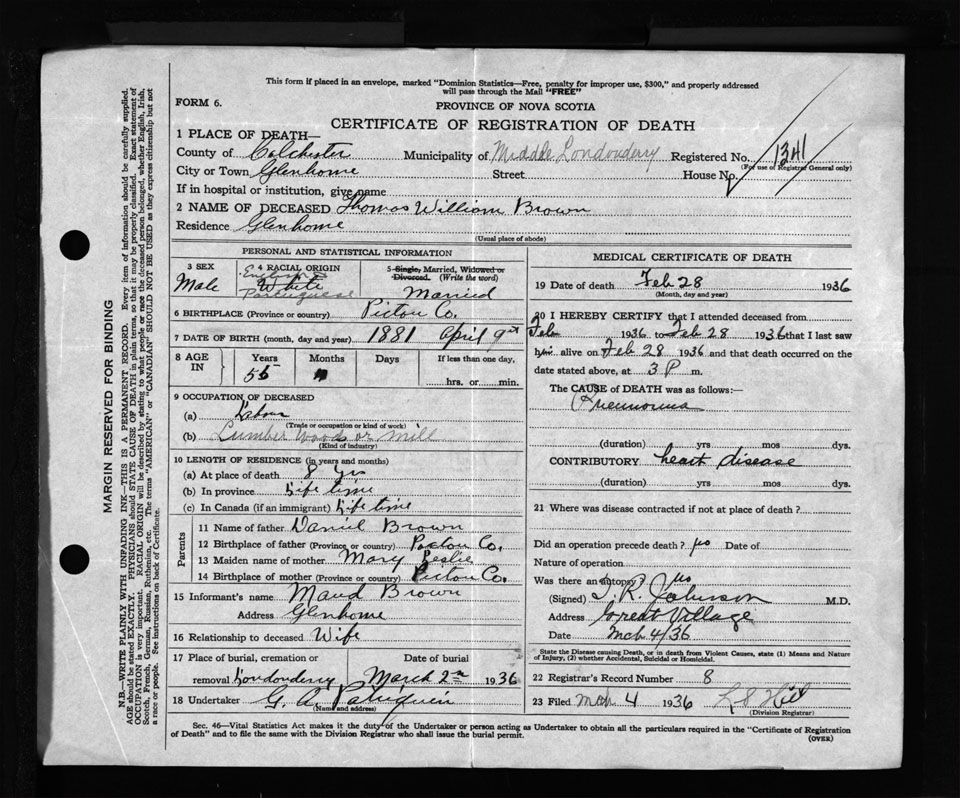 This form if placed in an envelope, marked "Dominion Statistics—Free, penalty for improper use, $300," and properly addressed
will pass through the Mail "FREE"
FORM 6.
PROVINCE OF NOVA SCOTIA
CERTIFICATE OF REGISTRATION OF DEATH
1 PLACE OF DEATH—
County of Colchester Municipality of Middle Londonderry Registered No. 1341
(For use of Registrar General only)
City or Town Glenholme Street House No.
If in hospital or institution, give name
2 NAME OF DECEASED Thomas William Brown
Residence Glenholme
(Usual place of abode)
PERSONAL AND STATISTICAL INFORMATION
3 SEX
Male
4 RACIAL ORIGIN
English
White
Portuguese
5 Single, Married, Widowed or
Divorced. (Write the word)
Married
6 BIRTHPLACE (Province or country) Pictou Co.
7 DATE OF BIRTH (month, day and year) 1881 April 9th
8 AGE IN Years Months Days If less than one day,
55
hrs. or min.
9 OCCUPATION OF DECEASED
(a) Labour
(Trade or occupation or kind of work)
(b) Lumber Woods or Mill
(Kind of industry)
10 LENGTH OF RESIDENCE (in years and months)
(a) At place of death 8 yrs
(b) In province Life time
(c) In Canada (if an immigrant) Life time
Parents
11 Name of father Daniel Brown
12 Birthplace of father (Province or country) Pictou Co.
13 Maiden name of mother Mary Leslie
14 Birthplace of mother (Province or country) Pictou Co.
15 Informant's name Maud Brown
Address Glenholme
16 Relationship to deceased Wife
17 Place of burial, cremation or Date of burial
removal Londonderry March 2nd 1936
18 Undertaker G. A. Patriquin
(Name and address)
MEDICAL CERTIFICATE OF DEATH
19 Date of death Feb 28 1936
(Month, day and year)
20 I HEREBY CERTIFY that I attended deceased from
Feb 1936 to Feb 28 1936 that I last saw
him alive on Feb 28 1936 and that death occurred on the
date stated above, at 3 P m.
The CAUSE of DEATH was as follows:—
Pneumonia
(duration) yrs mos dys.
CONTRIBUTORY heart disease
(duration) yrs mos dys.
21 Where was disease contracted if not at place of death?
Did an operation precede death? no Date of
Nature of operation
Was there an autopsy? no
(Signed) T. R. Johnson M.D.
Address Great Village
Date Mch 4/36
State the Disease causing Death, or in death from Violent Causes, state (1) Means and Nature
of Injury, (2) whether Accidental, Suicidal or Homicidal.
22 Registrar's Record Number 8
23 Filed Mch 4 1936 L S Hill
(Division Registrar)
Sec. 46—Vital Statistics Act makes it the duty of the Undertaker or person acting as Undertaker to obtain all the particulars required in the "Certificate of Registration
of Death" and to file the same with the Division Registrar who shall issue the burial permit.
(OVER)
MARGIN RESERVED FOR BINDING
N.B.—WRITE PLAINLY WITH UNFADING INK—THIS IS A PERMANENT RECORD. Every item of information should be carefully supplied.
AGE should be stated EXACTLY. PHYSICIANS should STATE CAUSE OF DEATH in plain terms, so that it may be properly classified. Exact statement of
OCCUPATION is very important. RACIAL ORIGIN will be described by stating to what people or race the deceased person belonged, whether English, Irish,
Scotch, French, German, Russian, Ruthenian, etc. The terms "AMERICAN" or "CANADIAN" SHOULD NOT BE USED as they express citizenship but not
a race or people. See instructions on back of Certificate.